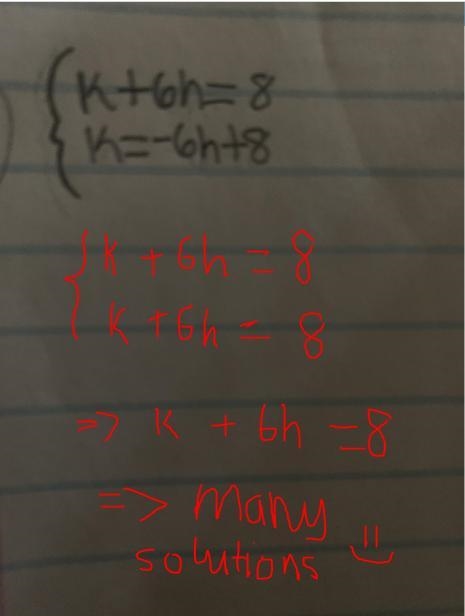 k+6h=8
k=-6h+8
k + 6h = 8
k + 6h = 8
=> k + 6h = 8
=> many
solutions